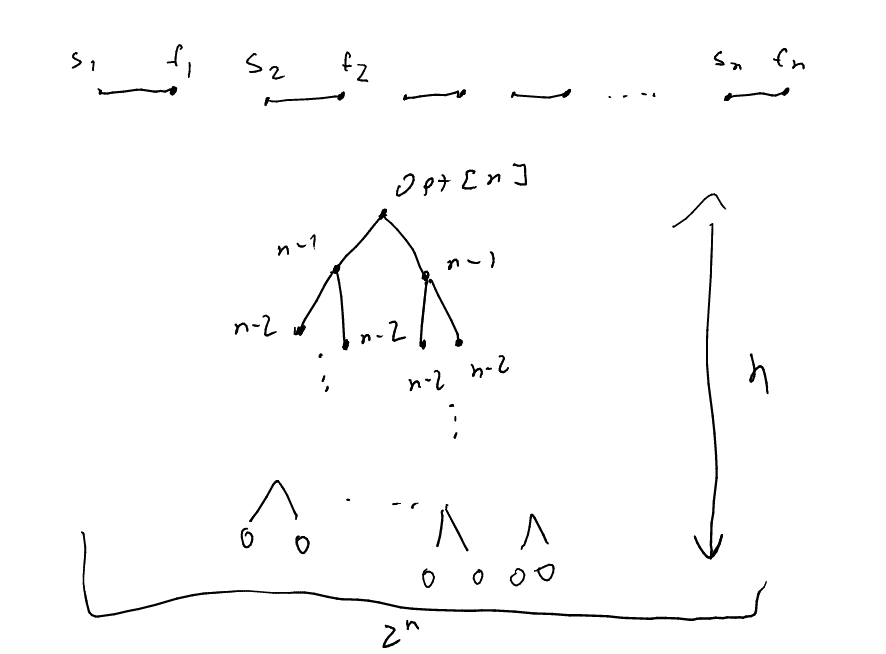 s₁ f₁ s₂ f₂ .... sₙ fₙ
Opt[n]
n-1 n-1
n-2 n-2 n-2 n-2
n
0 0 0 0 0 0
2ⁿ